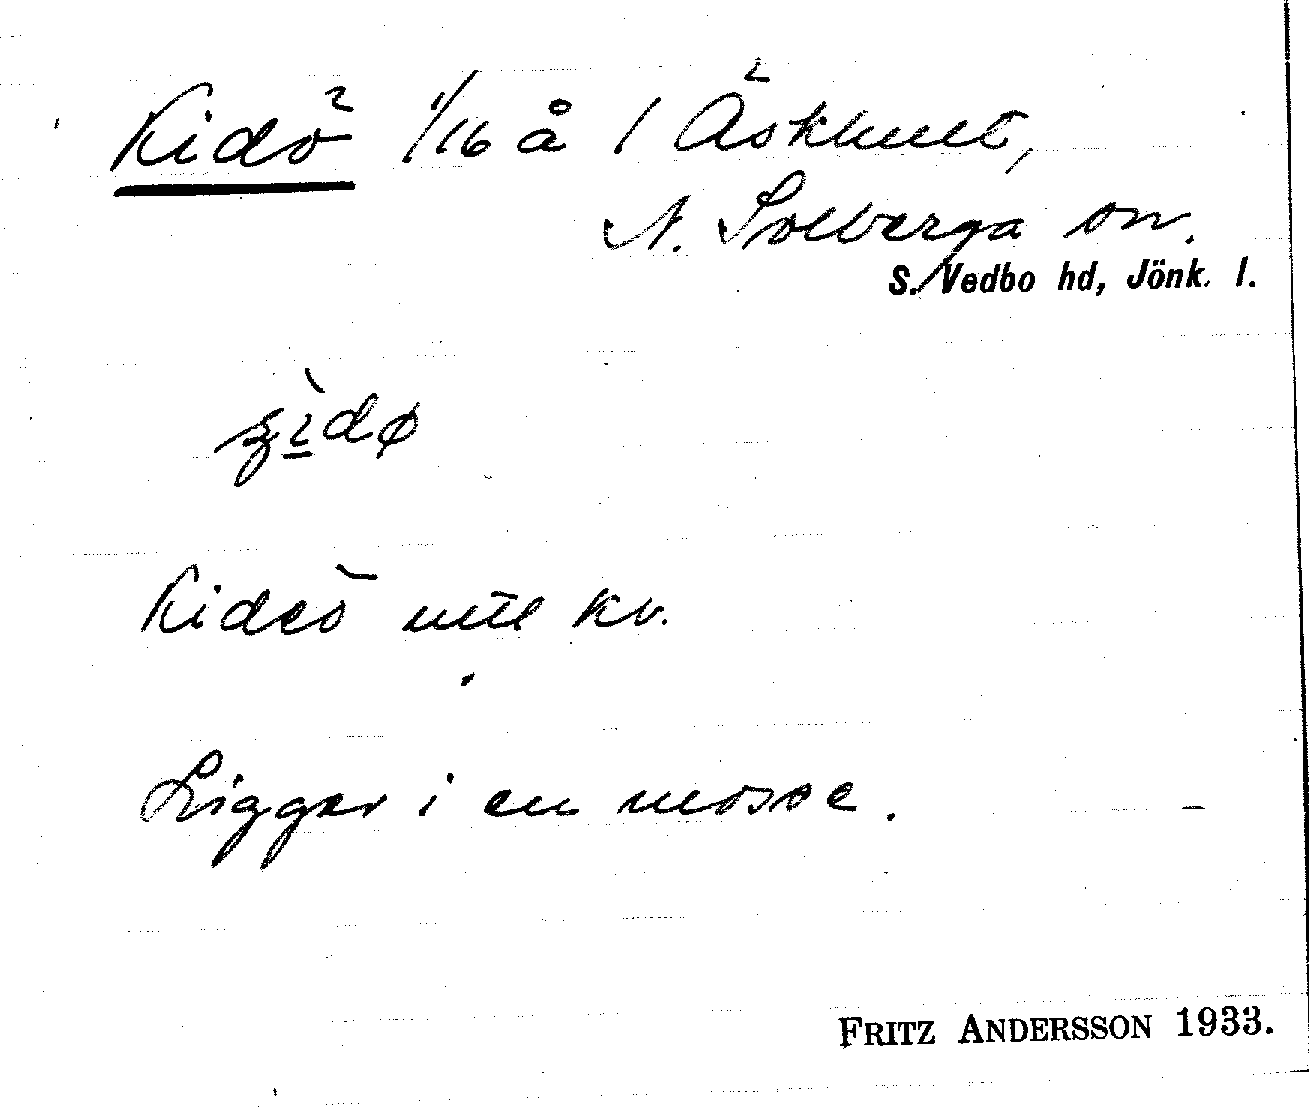 Kidö 1/16 å 1 Äskhult,
N. Solberga sn.
S. Vedbo hd, Jönk. l.
Kideö
Ligger i en mosse.
FRITZ ANDERSSON 1933.